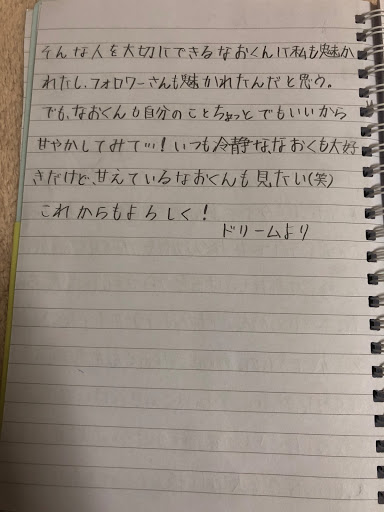 そんな人を大切にできるなおくんに私も魅か
れたし、フォロワーさんも魅かれたんだと思う。
でも、なおくんも自分のことちょっとでもいいから
甘やかしてみて…!いつも冷静な、なおくも大好
きだけど、甘えているなおくんも見たい(笑)
これからもよろしく!
ドリームより